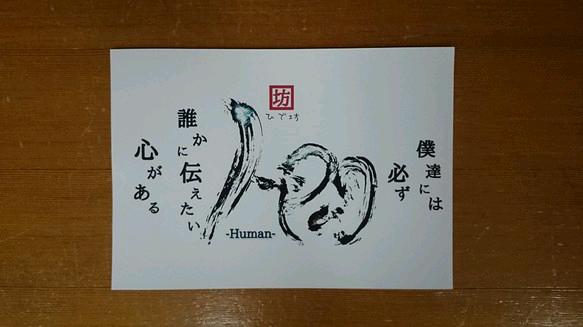 坊
ひで坊
僕達には
必ず
-Human-
誰かに伝えたい
心がある